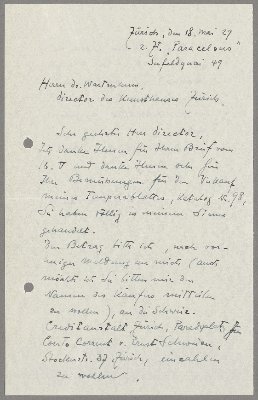 Zürich, den 18. Mai 29
z. Zt. "Paracelsus"
Seefeldquai 49
Herrn Dr. Wartmann,
Director des Kunsthauses Zürich
Sehr geehrter Herr Director,
ich danke Ihnen für Ihren Brief vom
V und danke Ihnen sehr für
Ihre Bemühungen für den Verkauf
meines Temperablattes, Katalog No 98,
Sie haben völlig in meinem Sinne
gehandelt.
Den Betrag bitte ich, nach
Meldung an mich (auch
möchte ich Sie bitten mir den
Namen des Käufers mitteilen
zu wollen), an die Schweiz.
Creditanstalt Zürich, Paradeplatz für
Conto Corrent v. Ernst
Zürich, einzahlen
zu wollen.